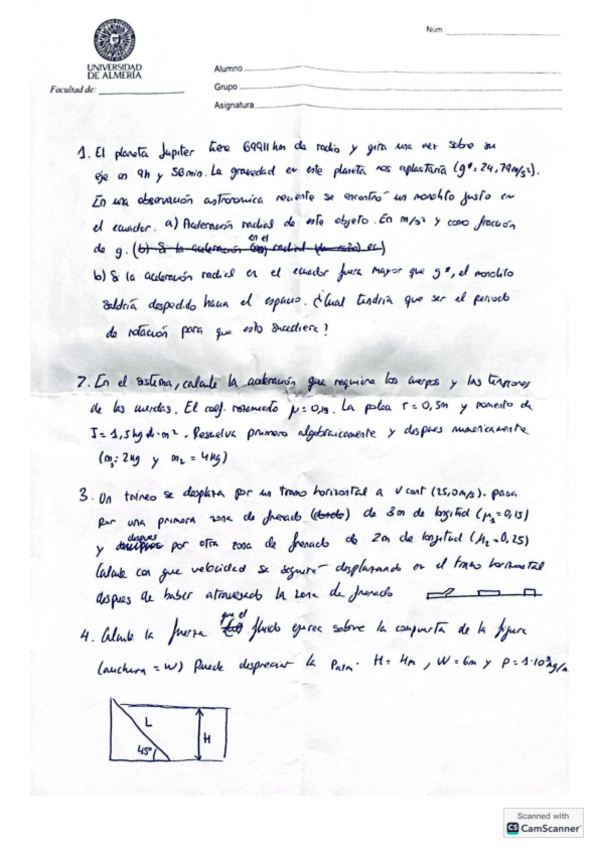 Num.
UNIVERSIDAD
DE ALMERÍA
Facultad de:
Alumno
Grupo
Asignatura
1. El planeta Jupiter tiene 69911 km de radio y gira una vez sobre su
eje en 9h y 50min. La gravedad en este planeta nos aplastaría (g*=24,79m/s²).
En una observación astronomica reciente se encontró un monolito justo en
el ecuador. a) Aceleración radial de este objeto. En m/s² y como fracción
de g. (b) Si la aceleración en el radial
b) Si la aceleración radial en el ecuador fuera mayor que g*, el monolito
saldría despedido hacia el espacio. ¿Cual tendría que ser el periodo
de rotación para que esto sucediera?
2. En el sistema, calcule la aceleración que adquiere los cuerpos y las tensiones
de las cuerdas. El coef. rozamiento μ=0,15. La polea r=0,5m y momento de
I=1,5 kg·m². Resuelva primero algebraicamente y despues numericamente
(m₁: 2kg y m₂ = 4kg)
3. Un trineo se desplaza por un tramo horizontal a v cont (25,0m/s). pasa
por una primera zona de frenado de 3m de logitud (μ₁=0,15)
y despues por otra zona de frenado de 2m de longitud (μ₂=0,25)
Calcule con que velocidad se seguirá desplazando en el tramo horizontal
despues de haber atravesado la zona de frenado
4. Calcule la fuerza que el fluido ejerce sobre la compuerta de la figura
(anchura = W) Puede despreciar la Patm. H= 4m, W=6m y ρ=1·10³kg/m
L
H
45º
Scanned with
CS CamScanner